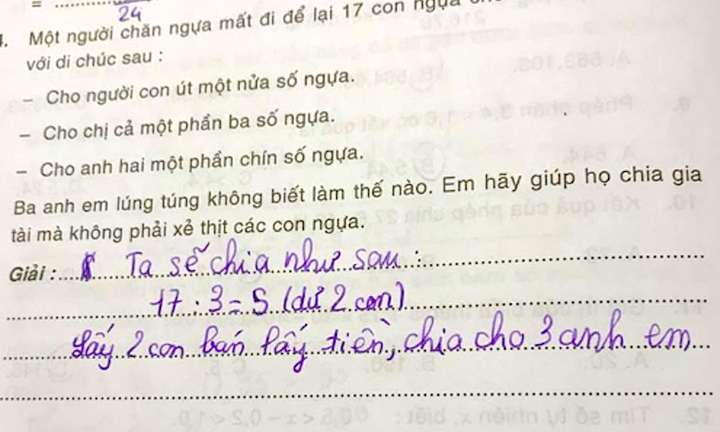 = ............ 24
. Một người chăn ngựa mất đi để lại 17 con ngựa
với di chúc sau :
– Cho người con út một nửa số ngựa.
– Cho chị cả một phần ba số ngựa.
– Cho anh hai một phần chín số ngựa.
Ba anh em lúng túng không biết làm thế nào. Em hãy giúp họ chia gia
tài mà không phải xẻ thịt các con ngựa.
Giải : Ta sẽ chia như sau :
17 : 3 = 5 (dư 2 con)
Lấy 2 con bán lấy tiền, chia cho 3 anh em